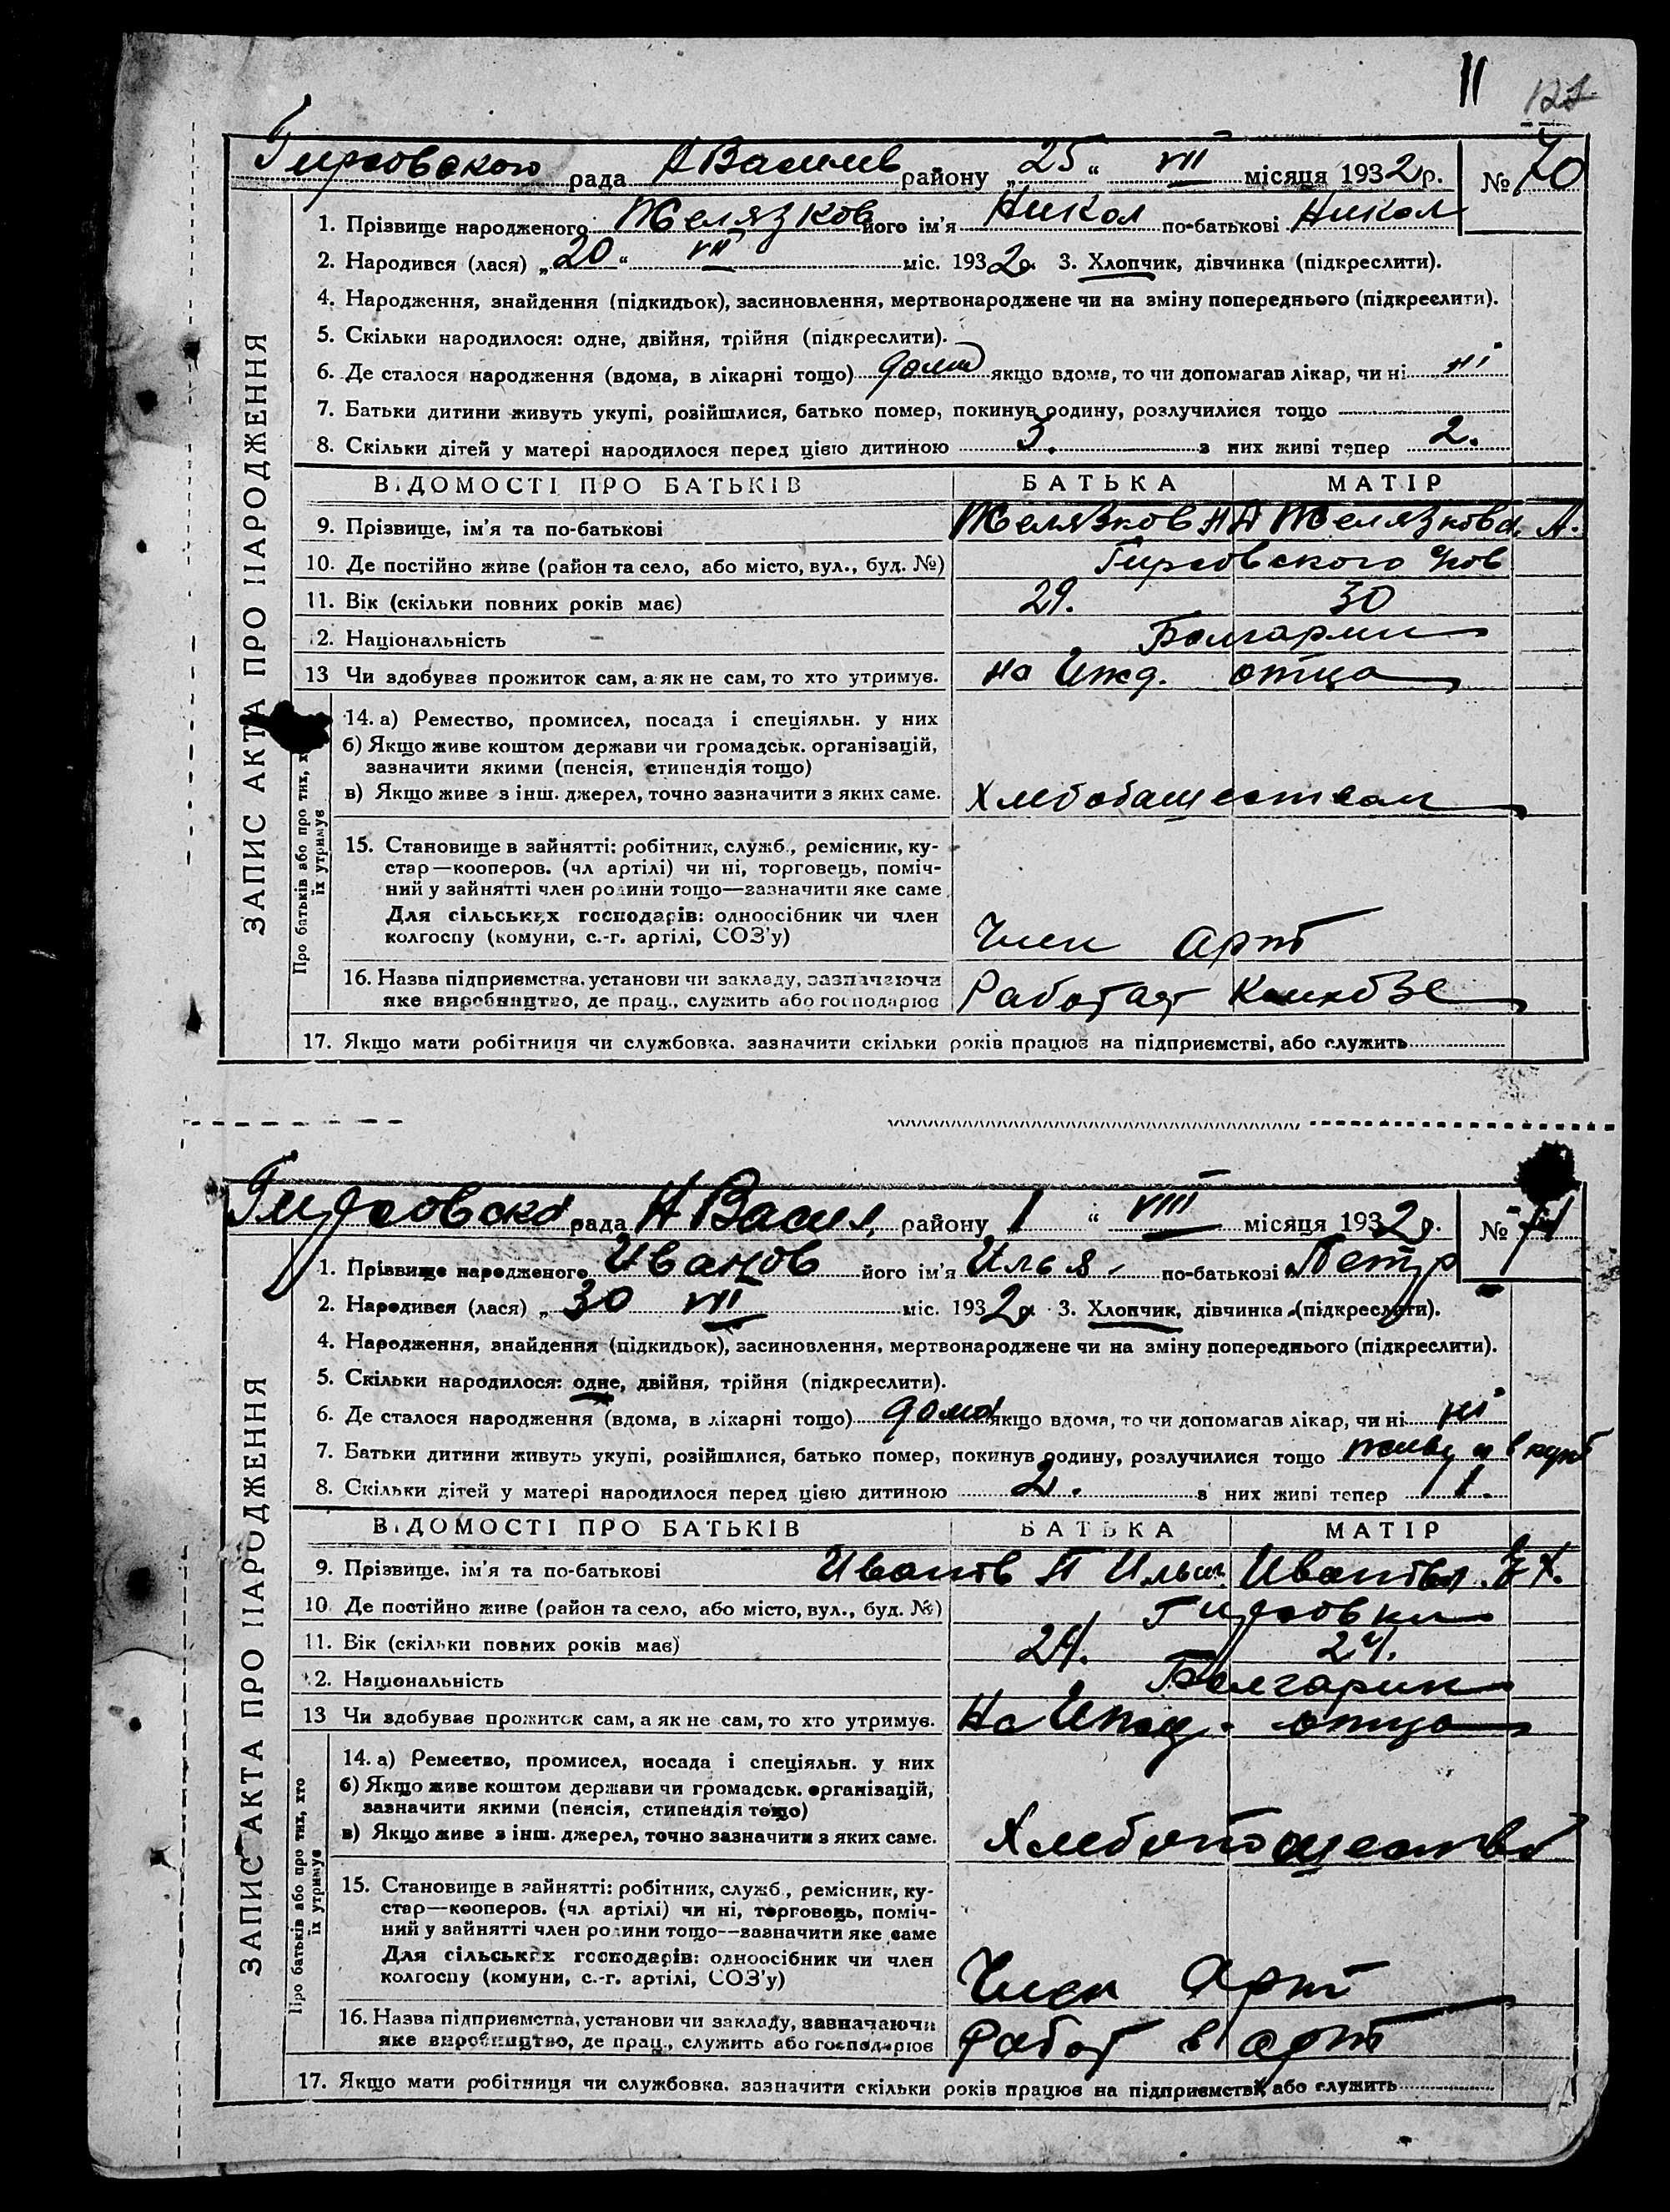 11
121
Гирсовского рада Н Василев району „25“ VII місяця 1932 р. № 70
ЗАПИС АКТА ПРО НАРОДЖЕННЯ
1. Прізвище народженого Желязков його ім'я Никол по-батькові Никол
2. Народився (лася) „20“ VII міс. 1932 р. 3. Хлопчик, дівчинка (підкреслити).
4. Народження, знайдення (підкидьок), засиновлення, мертвонароджене чи на зміну попереднього (підкреслити).
5. Скільки народилося: одне, двійня, трійня (підкреслити).
6. Де сталося народження (вдома, в лікарні тощо) дома якщо вдома, то чи допомагав лікар, чи ні ні
7. Батьки дитини живуть укупі, розійшлися, батько помер, покинув родину, розлучилися тощо
8. Скільки дітей у матері народилося перед цією дитиною 3. з них живі тепер 2.
ВІДОМОСТІ ПРО БАТЬКІВ БАТЬКА МАТІР
9. Прізвище, ім'я та по-батькові Желязков Н Д Желязкова А.
10. Де постійно живе (район та село, або місто, вул., буд. №) Гирсовского
11. Вік (скільки повних років має) 29. 30
12. Національність Болгарии
13 Чи здобував прожиток сам, а як не сам, то хто утримує. на Ижд. отца
Про батьків або про тих, хто їх утримує
14. а) Ремество, промисел, посада і спеціяльн. у них
б) Якщо живе коштом держави чи громадськ. організацій,
зазначити якими (пенсія, стипендія тощо)
в) Якщо живе з інш. джерел, точно зазначити з яких саме.
15. Становище в зайнятті: робітник, служб., ремісник, ку-
стар—кооперов. (чл артілі) чи ні, торговець, поміч-
ний у зайнятті член родини тощо—зазначити яке саме
Для сільських господарів: одноосібник чи член
колгоспу (комуни, с.-г. артілі, СОЗ'у) Член Арт
16. Назва підприємства, установи чи закладу, зазначаючи
яке виробництво, де прац., служить або господарює Работает
17. Якщо мати робітниця чи службовка, зазначити скільки років працює на підприємстві, або служить
Гирсовско рада Н Васил. району 1 “ VIII місяця 1932 р. № 71
ЗАПИС АКТА ПРО НАРОДЖЕННЯ
1. Прізвище народженого Иванов його ім'я Илья по-батькові Петр
2. Народився (лася) „30 VII міс. 1932 р. 3. Хлопчик, дівчинка (підкреслити).
4. Народження, знайдення (підкидьок), засиновлення, мертвонароджене чи на зміну попереднього (підкреслити).
5. Скільки народилося: одне, двійня, трійня (підкреслити).
6. Де сталося народження (вдома, в лікарні тощо) дома якщо вдома, то чи допомагав лікар, чи ні ні
7. Батьки дитини живуть укупі, розійшлися, батько помер, покинув родину, розлучилися тощо
8. Скільки дітей у матері народилося перед цією дитиною 2. з них живі тепер 1.
ВІДОМОСТІ ПРО БАТЬКІВ БАТЬКА МАТІР
9. Прізвище, ім'я та по-батькові Иванов П Ильич Иванова Х.
10 Де постійно живе (район та село, або місто, вул., буд. №) Гирсовки
11. Вік (скільки повних років має) 24. 24.
12. Національність Болгарии
13 Чи здобував прожиток сам, а як не сам, то хто утримує. На Ижд. отца
Про батьків або про тих, хто їх утримує
14. а) Ремество, промисел, посада і спеціяльн. у них
б) Якщо живе коштом держави чи громадськ. організацій,
зазначити якими (пенсія, стипендія тощо)
в) Якщо живе з інш. джерел, точно зазначити з яких саме.
15. Становище в зайнятті: робітник, служб., ремісник, ку-
стар—кооперов. (чл артілі) чи ні, торговець, поміч-
ний у зайнятті член родини тощо—зазначити яке саме
Для сільських господарів: одноосібник чи член
колгоспу (комуни, с.-г. артілі, СОЗ'у) Член Арт
16. Назва підприємства, установи чи закладу, зазначаючи
яке виробництво, де прац., служить або господарює Работ в арт
17. Якщо мати робітниця чи службовка, зазначити скільки років працює на підприємстві, або служить